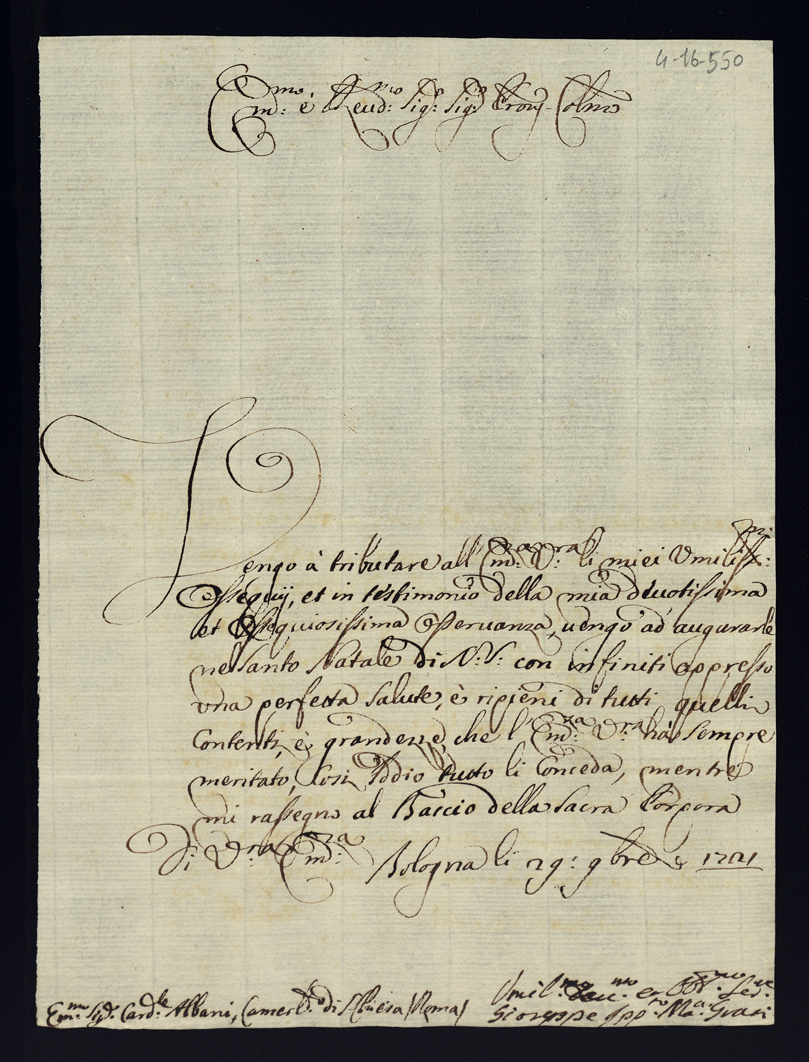 4-16-550
Em:mo è Reud:mo Sig:r Sig:r Prone Colmo
Vengo à tributare all'Em:za V:ra li miei Vmiliss:mi
Ossequij, et in testimonio della mia diuotissima
et Ossequiosissima Osseruanza, uengo ad augurarle
nel Santo Natale di N:S: con infiniti appresso
vna perfetta Salute, è ripieni di tutti quelli
Contenti, è grandezze, che l'Em:za V:ra hà sempre
meritato, Così Iddio tutto li Conceda, mentre
mi rassegno al Baccio della Sacra Porpora
Di V:ra Em:za Bologna li 29: 9bre 1721
Em:mo Sig:r Card:le Albani, Camerl:o di S. Chiesa / Roma /
Vmil:mo Deu:mo et Obb:mo Ser:re
Gioseppe M:a